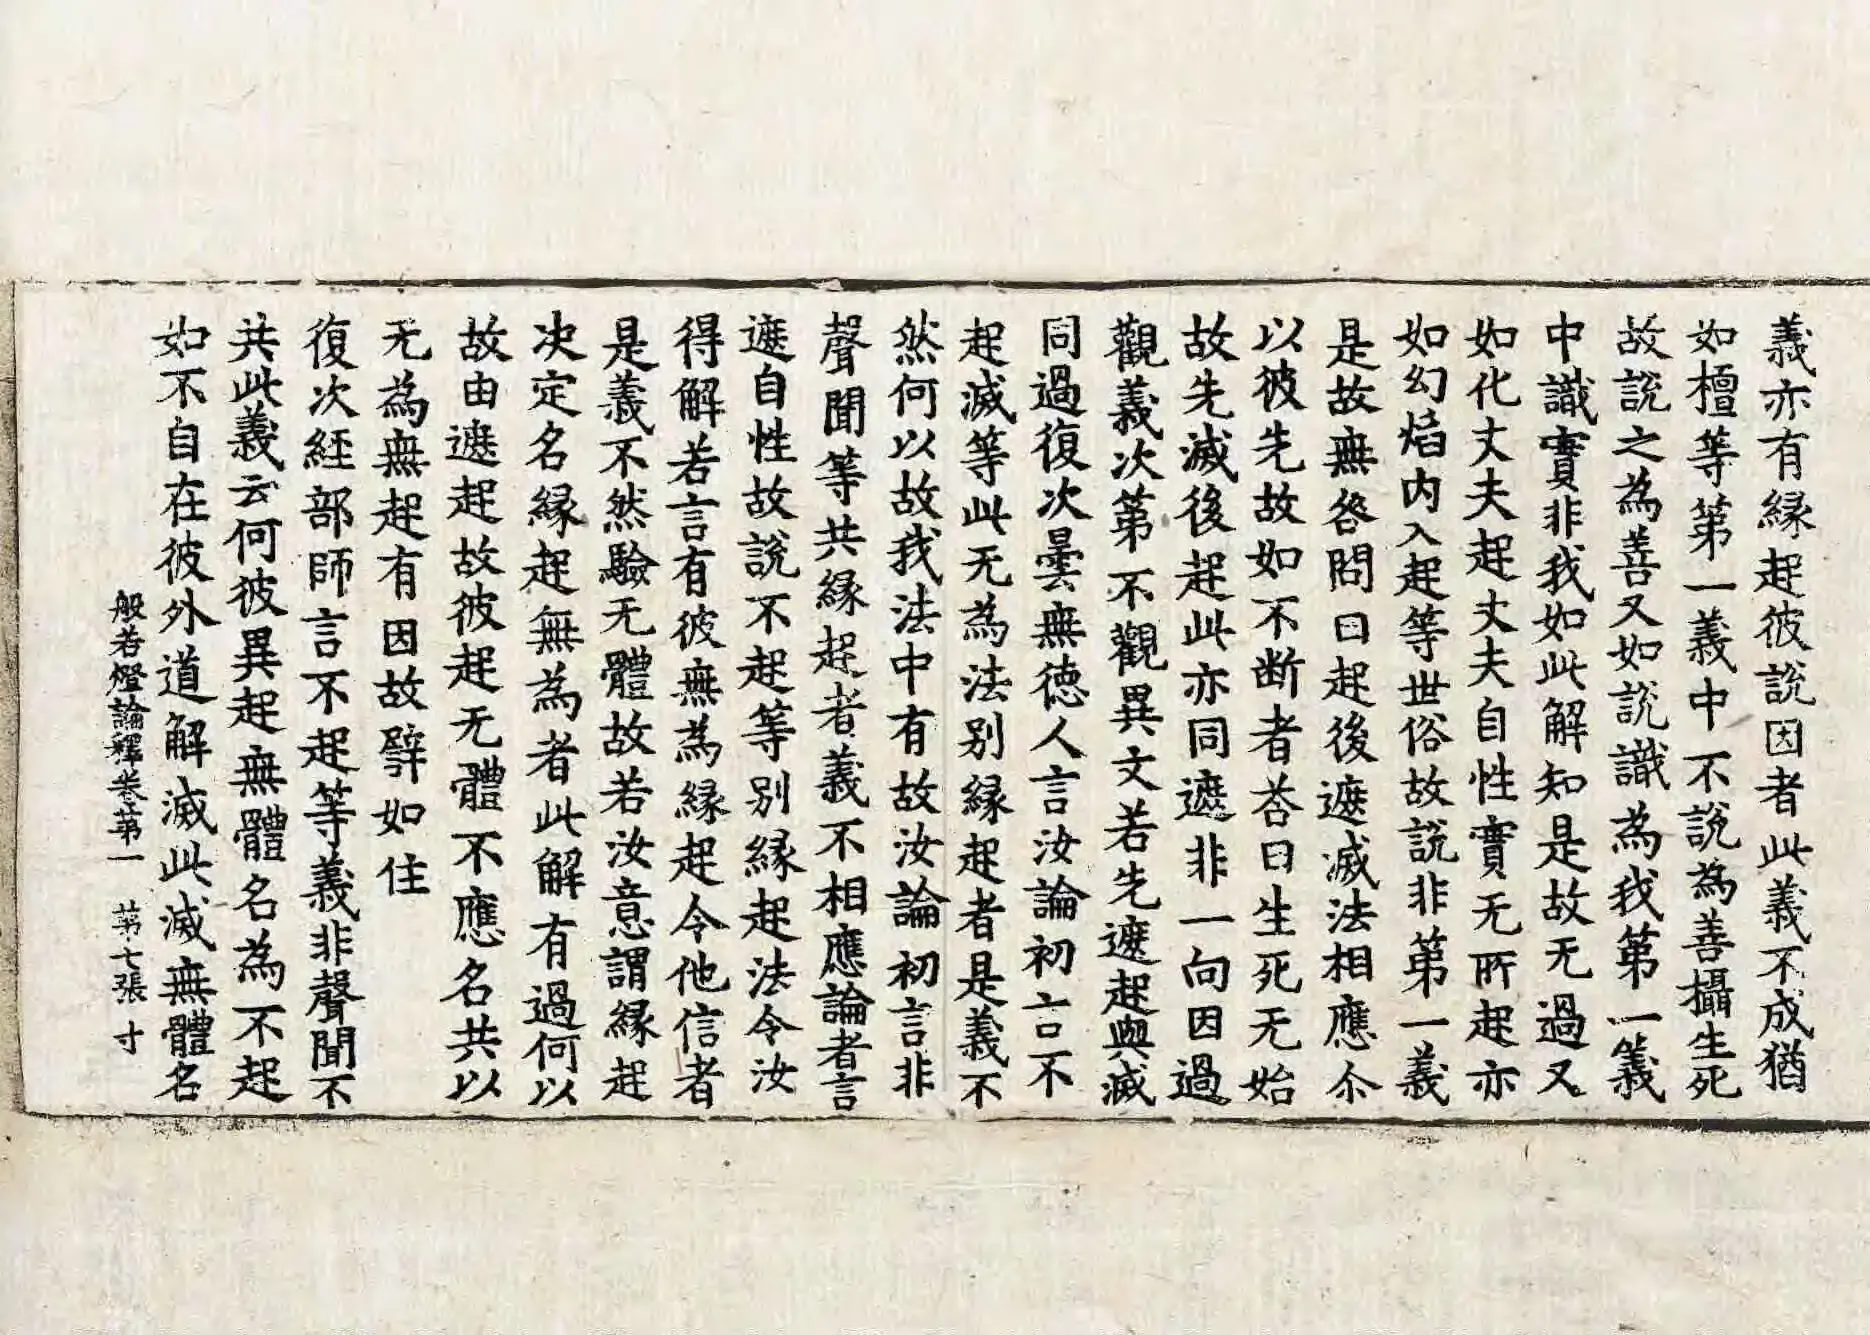 義亦有縁起彼說因者此義不成猶
如檀等第一義中不說為善攝生死
故說之為善又如說識為我第一義
中識實非我如此解知是故无過又
如化丈夫起丈夫自性實无所起亦
如幻焰内入起等世俗故說非第一義
是故無咎問曰起後遮滅法相應尒
以彼先故如不断者荅曰生死无始
故先滅後起此亦同遮非一向因過
觀義次第不觀異文若先遮起與滅
同過復次曇無徳人言汝論初言不
起滅等此无為法别縁起者是義不
然何以故我法中有故汝論初言非
聲聞等共縁起者義不相應論者言
遮自性故說不起等别縁起法令汝
得解若言有彼無為縁起令他信者
是義不然驗无體故若汝意謂縁起
决定名縁起無為者此解有過何以
故由遮起故彼起无體不應名共以
无為無起有因故譬如住
復次經部師言不起等義非聲聞不
共此義云何彼異起無體名為不起
如不自在彼外道解滅此滅無體名
般若燈論釋卷第一　第七張　寸